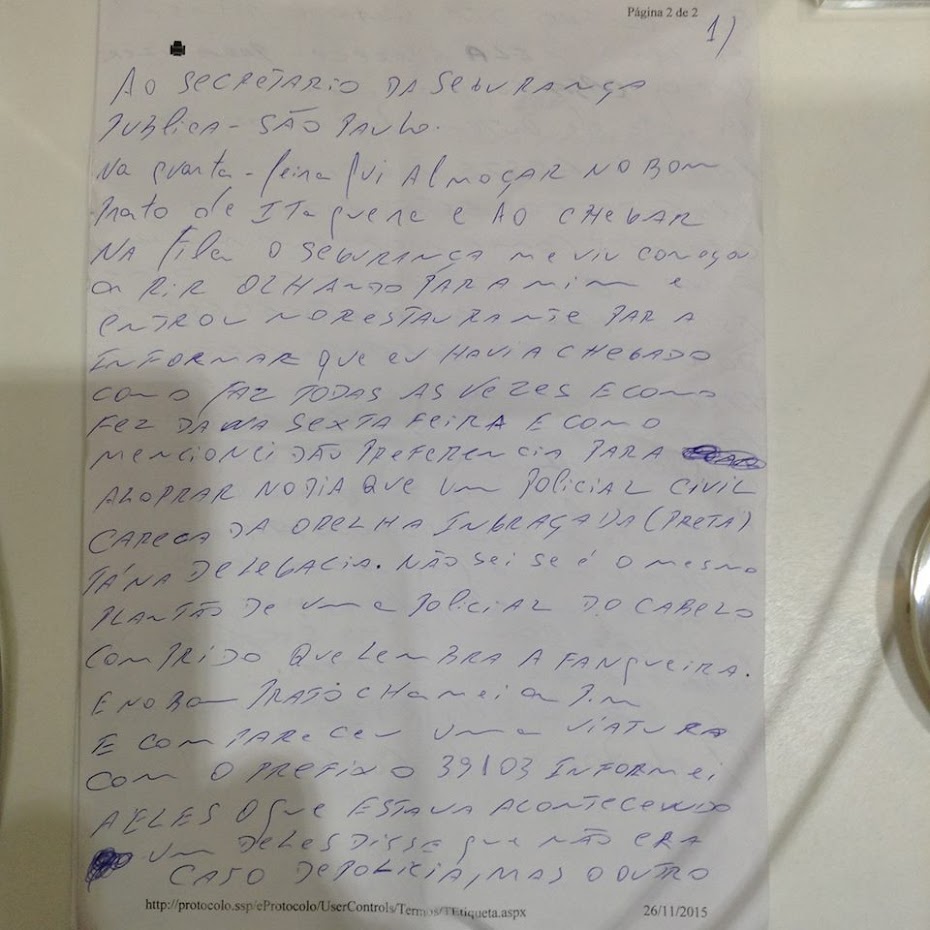 Página 2 de 2
1)
AO SECRETARIO DA SEGURANÇA
PUBLICA - SÃO PAULO.
Na quarta-feira fui ALMOÇAR NO BOM
Prato de ITAquera e AO CHEGAR
NA fila O SEGURANÇA me viu começou
a RIR OLHANDO PARA mim e
ENTROU NO RESTAURANTE PARA
INFORMAR que eu HAVIA CHEGADO
COMO FAZ TODAS AS VEZES E COMO
FEZ NA SEXTA FEIRA E COMO
MENCIONEI DÃO PREFERENCIA PARA
ALOPRAR NO DIA QUE UM POLICIAL CIVIL
CARECA DA ORELHA INBRAÇADA (PRETA)
TÁ NA DELEGACIA. NÃO SEI SE É O MESMO
PLANTÃO DE UMA POLICIAL DO CABELO
COMPRIDO QUE LEMBRA A FANQUEIRA.
E NO BOM PRATO CHAMEI a P.M
E COMPARECEU UMA VIATURA
COM O PREFIXO 39103 INFORMEI
A ELES O QUE ESTAVA ACONTECENDO
UM DELES DISSE que NÃO ERA
CASO DE POLICIA, MAS O OUTRO
http://protocolo.ssp/eProtocolo/UserControls/Termos/TEtiqueta.aspx
26/11/2015